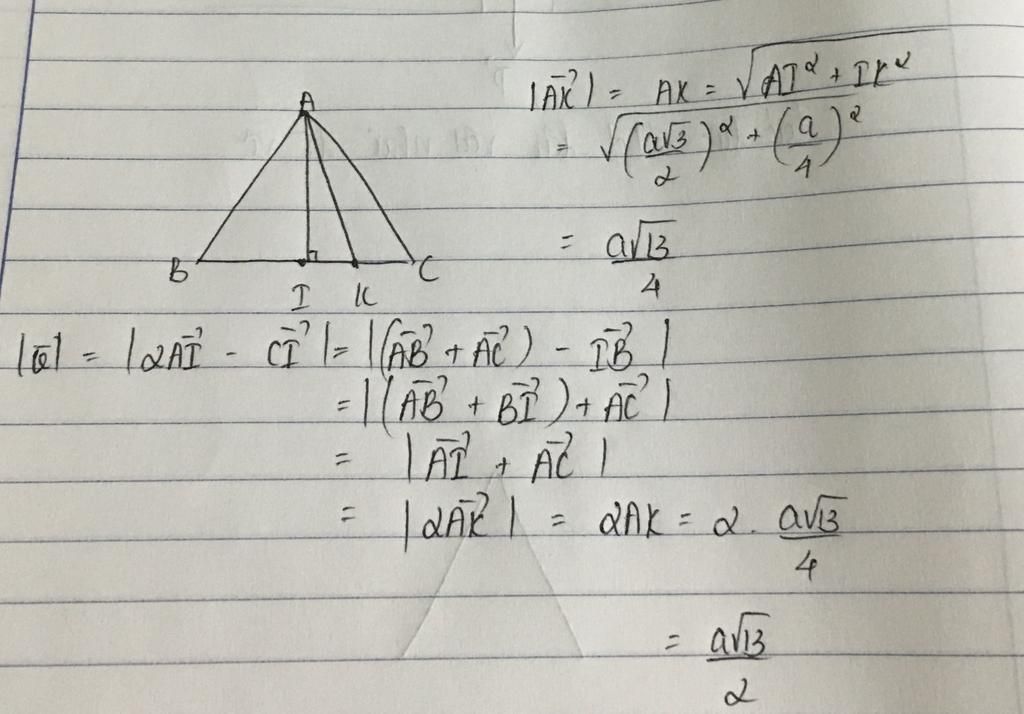 A
B I K C
|AK⃗| = AK = √(AI² + IK²)
= √((a√3/2)² + (a/4)²)
= a√13/4
|u⃗| = |2AI⃗ - CI⃗| = |(AB⃗ + AC⃗) - IB⃗|
= |(AB⃗ + BI⃗) + AC⃗|
= |AI⃗ + AC⃗|
= |2AK⃗| = 2AK = 2 . a√13/4
= a√13/2